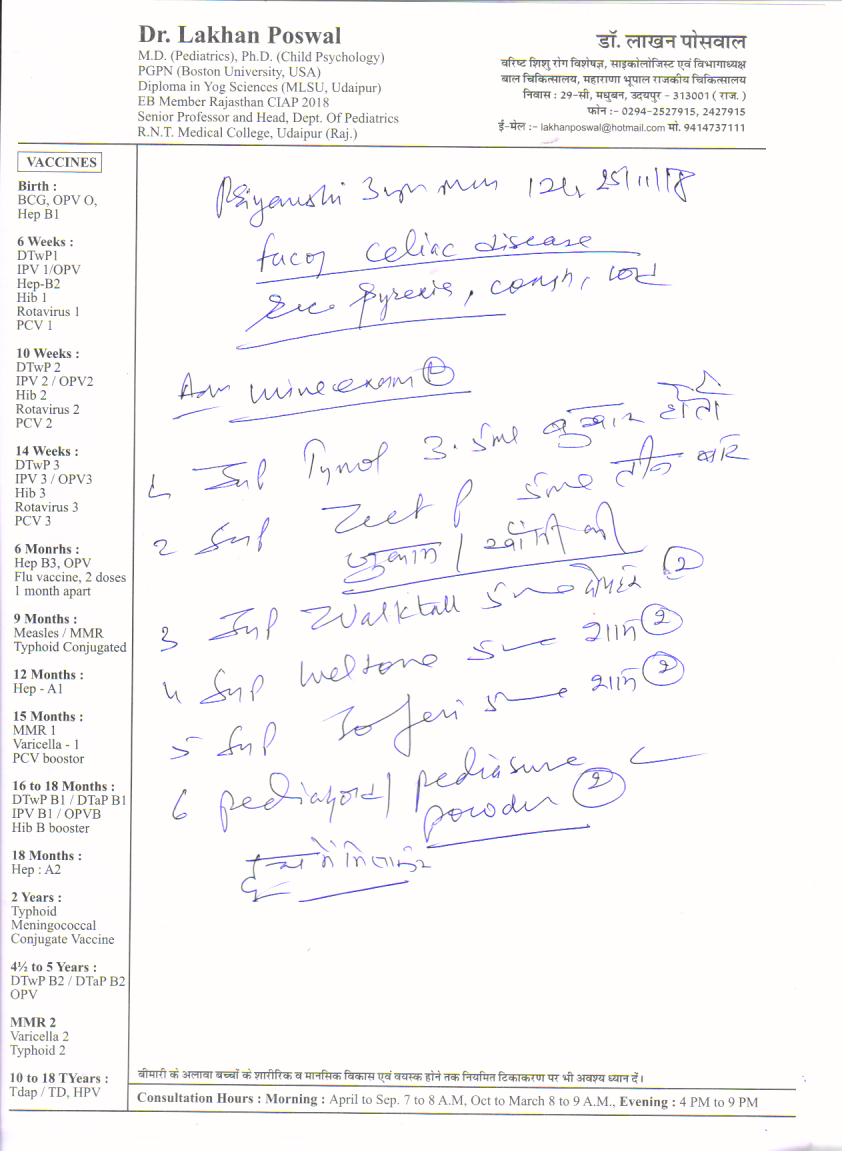 Dr. Lakhan Poswal
M.D. (Pediatrics), Ph.D. (Child Psychology)
PGPN (Boston University, USA)
Diploma in Yog Sciences (MLSU, Udaipur)
EB Member Rajasthan CIAP 2018
Senior Professor and Head, Dept. Of Pediatrics
R.N.T. Medical College, Udaipur (Raj.)
डॉ. लाखन पोसवाल
वरिष्ट शिशु रोग विशेषज्ञ, साइकोलोजिस्ट एवं विभागाध्यक्ष
बाल चिकित्सालय, महाराणा भूपाल राजकीय चिकित्सालय
निवास : 29-सी, मधुबन, उदयपुर - 313001 ( राज. )
फोन :- 0294-2527915, 2427915
ई-मेल :- lakhanposwal@hotmail.com मो. 9414737111
VACCINES
Birth :
BCG, OPV O,
Hep B1
6 Weeks :
DTwP1
IPV 1/OPV
Hep-B2
Hib 1
Rotavirus 1
PCV 1
10 Weeks :
DTwP 2
IPV 2 / OPV2
Hib 2
Rotavirus 2
PCV 2
14 Weeks :
DTwP 3
IPV 3 / OPV3
Hib 3
Rotavirus 3
PCV 3
6 Monrhs :
Hep B3, OPV
Flu vaccine, 2 doses
1 month apart
9 Months :
Measles / MMR
Typhoid Conjugated
12 Months :
Hep - A1
15 Months :
MMR 1
Varicella - 1
PCV boostor
16 to 18 Months :
DTwP B1 / DTaP B1
IPV B1 / OPVB
Hib B booster
18 Months :
Hep : A2
2 Years :
Typhoid
Meningococcal
Conjugate Vaccine
4½ to 5 Years :
DTwP B2 / DTaP B2
OPV
MMR 2
Varicella 2
Typhoid 2
10 to 18 TYears :
Tdap / TD, HPV
Priyanshi 25/11/18
celiac disease
pyrexia,
Adv urine exam
1 Syp Tynol 3.5ml बुखार हो तो
2 Syp Zeet P 5ml तीन बार
जुकाम / खांसी की
3 Syp Walktall 5ml दोपहर 2
4 Syp Weltone 5ml शाम 2
5 Syp 5ml शाम 2
6 pediagold / pediasure
powder 2
दूध में मिलाकर
बीमारी के अलावा बच्चों के शारीरिक व मानसिक विकास एवं वयस्क होने तक नियमित टिकाकरण पर भी अवश्य ध्यान दें।
Consultation Hours : Morning : April to Sep. 7 to 8 A.M, Oct to March 8 to 9 A.M., Evening : 4 PM to 9 PM